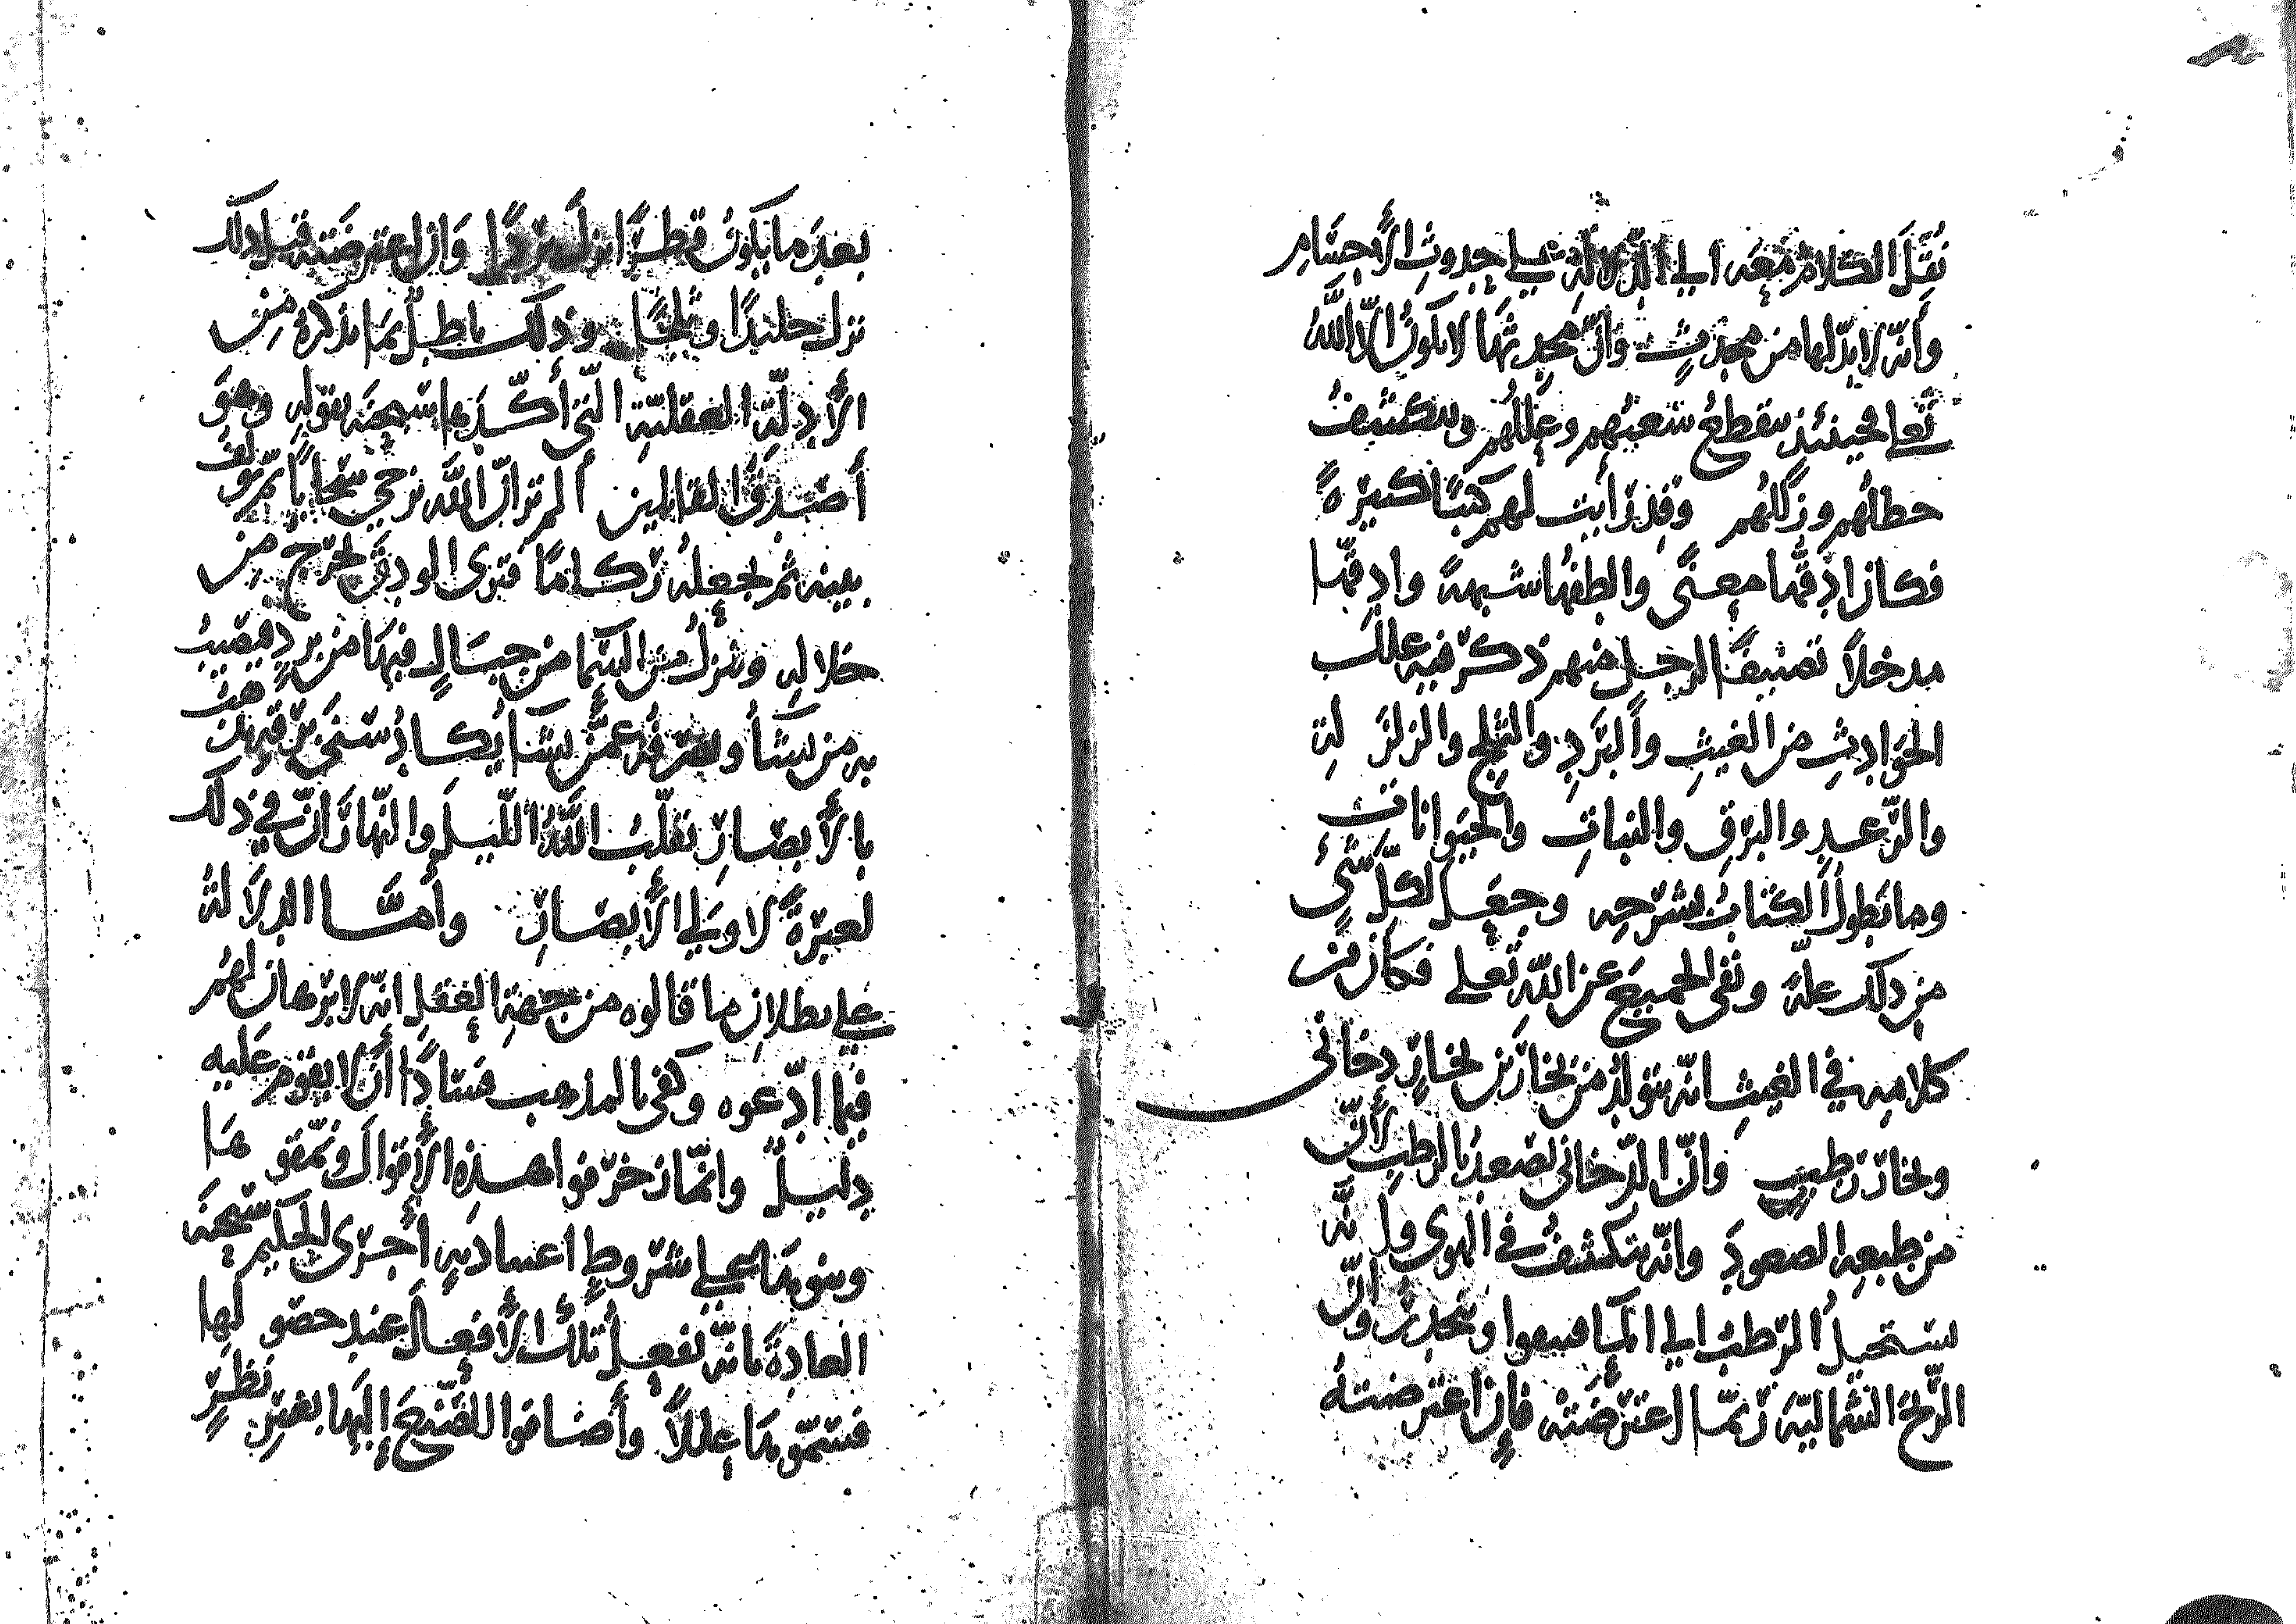 نُقِلَ الكلامُ معَه الي الدّلالةِ علي حدوثِ الأجسَامِ
وأنّه لا بدّ لها من محدثٍ وأنّ محدثَهَا لا يكونُ الّا اللّهُ
تعلي فحينئذ ينقطعُ شعبُهم وعِللُهم وينكشفُ
خطاؤهم وزللُهم وقد رأيت لهم كتبًا كثيرةً
فكان ادقُّها معنًى والطفُها شبهةً وادقُّها
مدخلاً تصنيفًا لرجلٍ منهم ذكرَ فيه علل
الحوادِثِ من الغيثِ والبَرَدِ والثلجِ والزلزلةِ
والرّعدِ والبرقِ والنباتِ والحيوانات
وما يطولُ الكتابُ بشرحِه وجعَل لكلّ شيءٍ
من ذلك علةً ونفى الجميعَ عن اللّهِ تعلي فكان من
كلامِه في الغيثِ انّه يتولدُ من بخارَين بخارٍ دخانى
وبخارٍ رطبٍ وانّ الدّخانى يصعدُ بالرطبِ لأنّ
من طبعِه الصعودَ وانّه يتكشفُ في الهوى ولأنّه
يستحيلُ الرّطبُ الي الما فيهوا وينحدرُ وانّ
الرّيحَ الشماليّةَ ربمّا اعترضَتهُ فإن اعترضتهُ
بعدَ ما يكونُ قطرًا نزلَ بَرَدًا وان اعترضَته قبل ذلك
نزل جليدًا وثلجًا وذلك باطلٌ بما نذكرهُ من
الأدلّةِ العقليّةِ التي أكّدَها سبحنَه بقولِه وهوَ
أصدقُ القائلين ألم ترَ انّ اللّه يزجي سحابًا ثمّ يؤلفُ
بينه ثم يجعلُه ركامًا فترى الودقَ يخرج من
خلالِه وينزلُ من السّما من جبَالٍ فيهَا من بردٍ فيصيبُ
به من يشأُ ويصرفُه عمّن يشَا يكادُ سنَى برقِه يذهبُ
بالأبصارِ يقلّبُ اللّهُ اللّيلَ والنّهارَ انّ في ذلك
لعبرةً لاولي الأبصارِ وأمّا الدلالةُ
علي بطلانِ ما قالوه من جهةِ العقلِ انّه لا برهان لهُم
فيما ادّعوه وكفى بالمذهب فسادًا أن لا يقوم عَليه
دليلٌ وانّما زخرفوا هذه الأقوالَ ونمّقوها
وبنوهَا علي شروطٍ اعتياديةٍ أجرى الحكيم سبحنَه
العادةَ بأنّه يفعلُ تلك الأفعالَ عند حصولها
فسمّوهَا عِللاً وأضافوا الصّنيعَ إليهَا بغيرِ نظرٍ